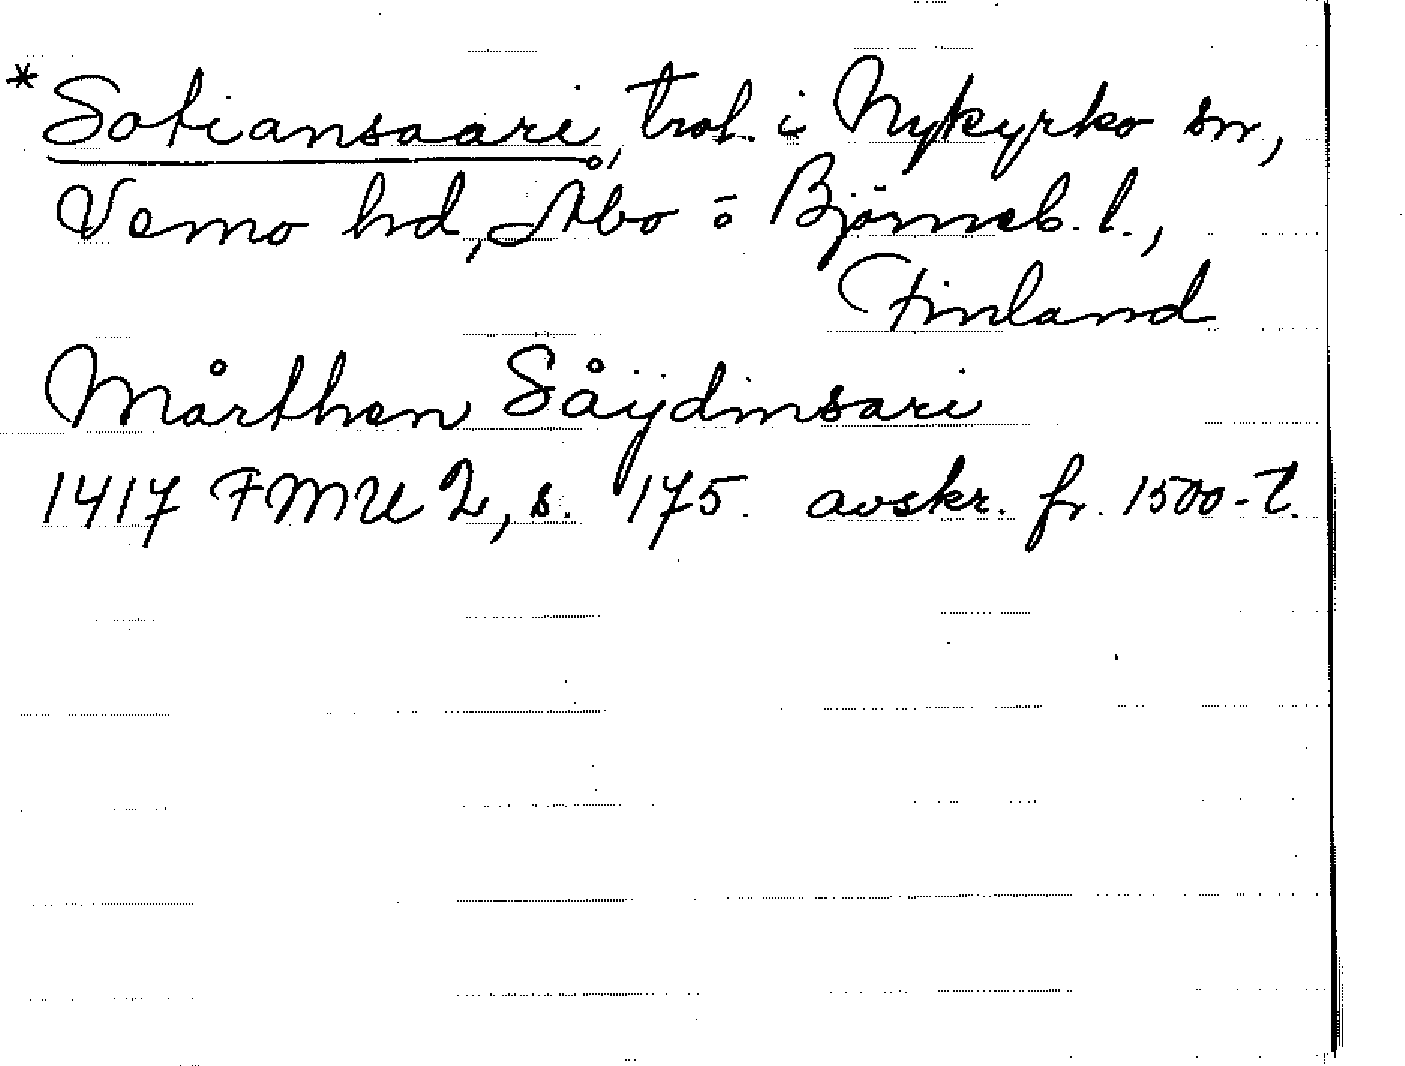 *Sotiansaari, trol. i Nykyrko sn,
Vemo hd, Åbo o Björneb. l.,
Finland
Mårthen Såÿdinsari
1417 FMU 2, s. 175. avskr. fr. 1500-t.